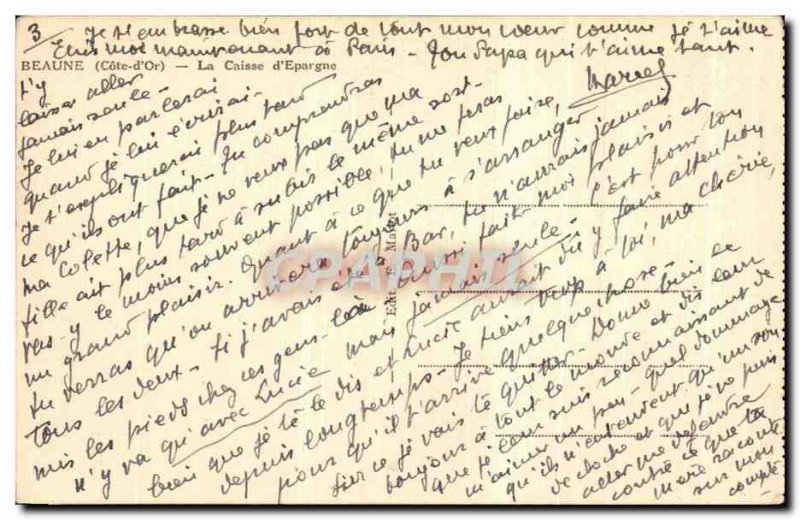 3
Je t'embrasse bien fort de tout mon coeur comme je t'aime
Ecris moi maintenant à Paris - Ton Papa qui t'aime tant.
Marcel
BEAUNE (Côte-d'Or) — La Caisse d'Epargne
t'y
laisser aller
jamais seule -
Je lui en parlerai
quand je lui écrirai -
Je t'expliquerai plus tard
ce qu'ils ont fait - Tu comprendras
ma Colette, que je ne veux pas que ma
fille ait plus tard à subir le même sort -
Vas-y le moins souvent possible, tu me feras
un grand plaisir. Quant à ce que tu veux faire,
tu verras qu'on arrivera toujours à s'arranger
tous les deux - Si j'avais été à Bar, tu n'aurais jamais
mis les pieds chez ces gens-là aussi fait-moi plaisir et
n'y va qu'avec Lucie mais jamais seule - C'est pour ton
bien que je te le dis et Lucie aurait dû y faire attention
depuis longtemps - Je tiens trop à toi, ma chérie,
pour qu'il t'arrive quelque chose -
Sur ce je vais te quitter - Donne bien le
bonjour à tout le monde et dis leur
que je leur suis reconnaissant de
m'aimer un peu - quel dommage
qu'ils n'entendent qu'un son
de cloche et que je ne puis
aller me défendre
contre ce que ta
mère raconte
sur mon
compte
Edit. Mallot
CPAPHIL